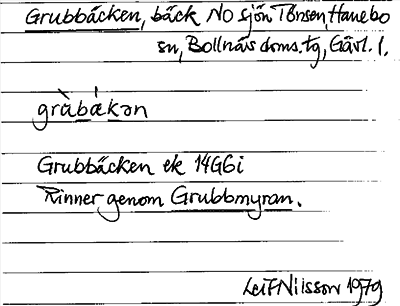 Grubbäcken, bäck NO sjön Tönsen, Hanebo
sn, Bollnäs doms.tg, Gävl. l.
gràbǽkən
Grubbäcken ek 14G6i
Rinner genom Grubbmyran.
Leif Nilsson 1979